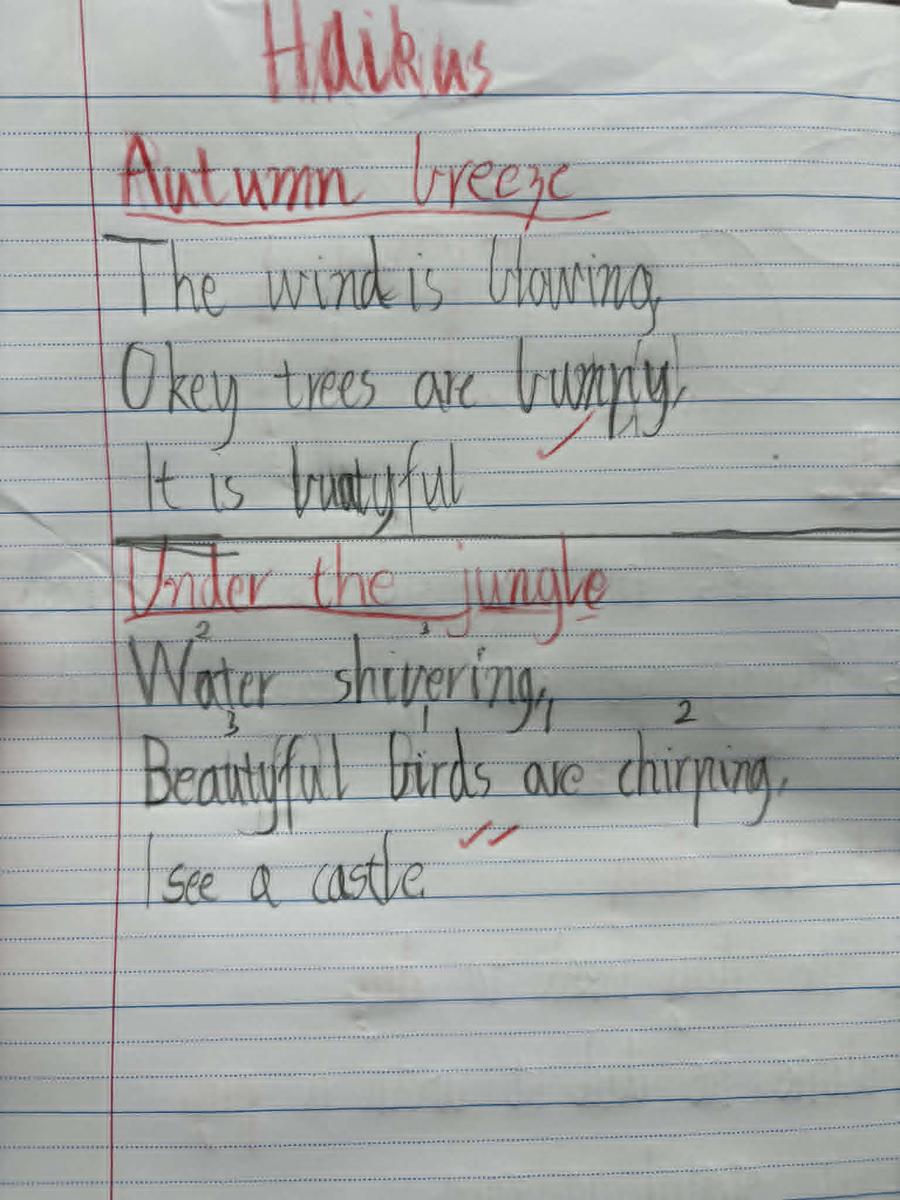 Haikus
Autumn breeze
The wind is blowing
Okey trees are bumpy,
It is buatyful
Under the jungle
2 3
Water shivering,
3 1 2
Beautyful birds are chirping,
I see a castle